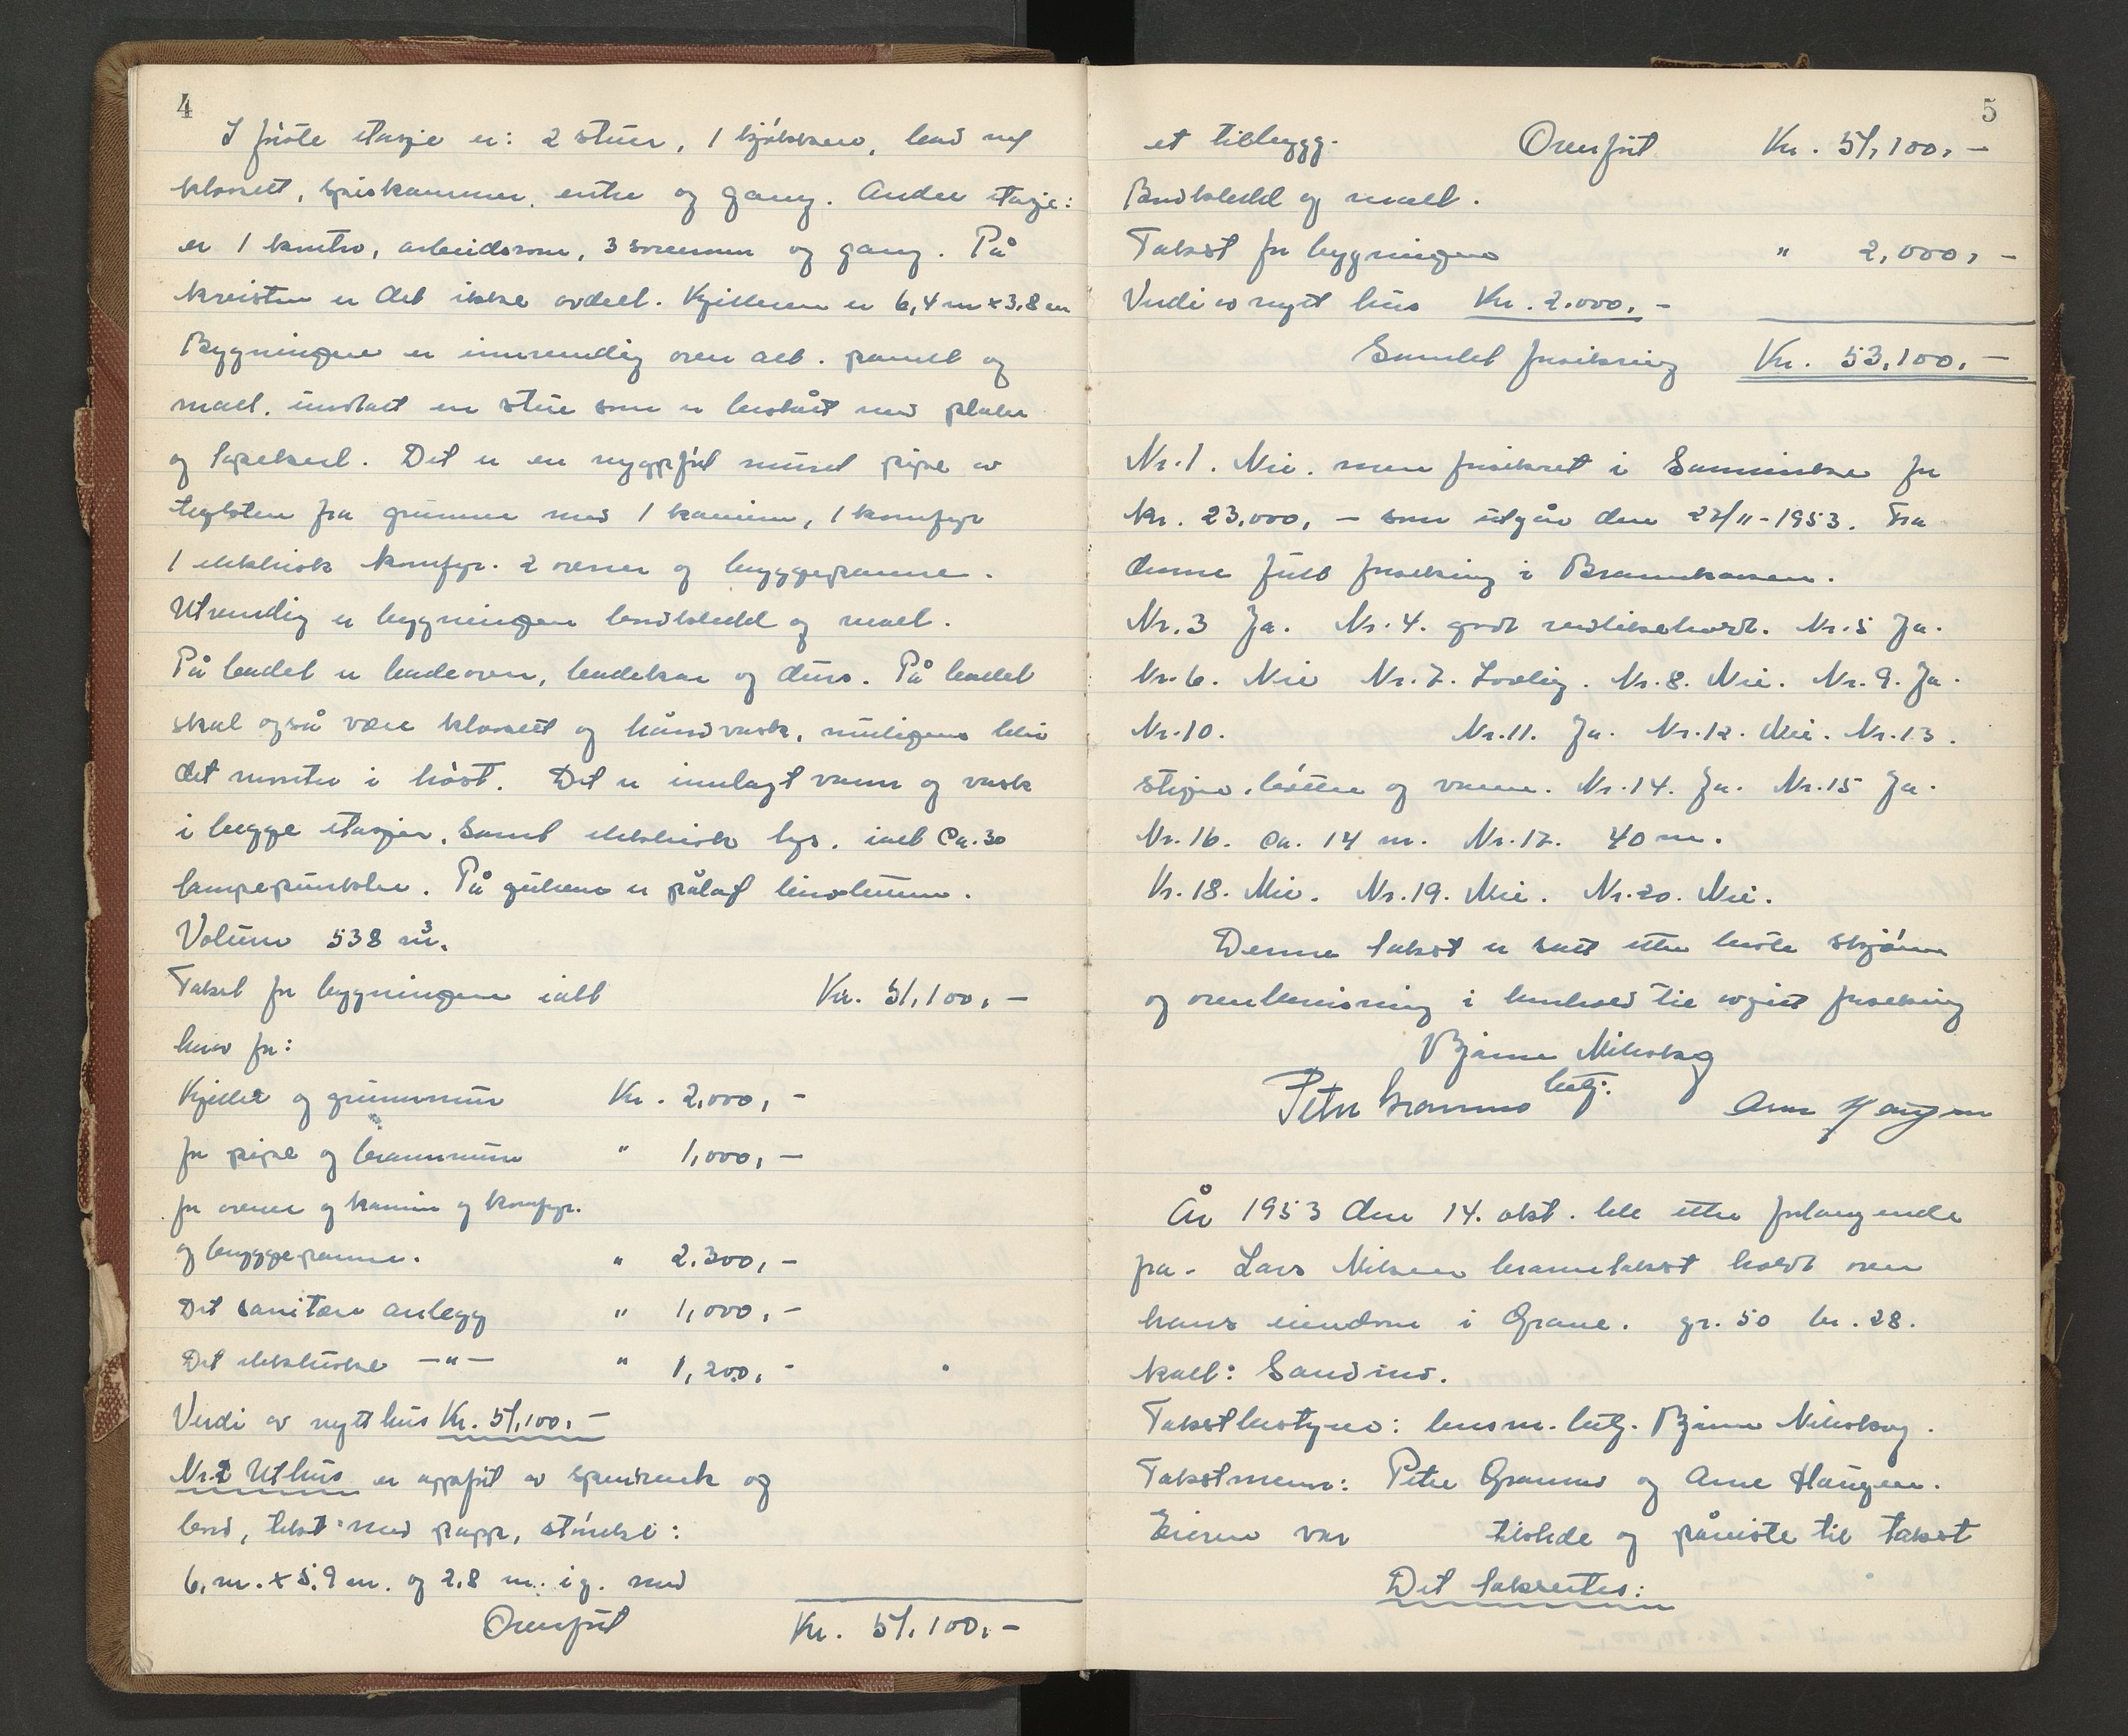 4
I første etasje er: 2 stuer, 1 kjøkken, bad m/
klosett, spiskammer, entre og gang. Andre etasje:
er 1 kontor, arbeidsrom, 3 soverom og gang. På
kvisten er det ikke avdelt. Kjelleren er 6,4 m x 3,8 m
Bygningen er innvendig over alt panelt og
malt, undtatt en stue som er beslått med plater
og tapetsert. Det er en nyoppført muret pipe av
teglsten fra grunnen med 1 kamin, 1 komfyr
1 elektrisk komfyr. 2 ovner og bryggepanne.
Utvendig er bygningen bordkledd og malt.
På badet er badeovn, badekar og dus. På badet
skal også være klosett og håndvask, muligens blir
det montert i høst. Det er innlagt vann og vask
i begge etasjer, samt elektrisk lys. ialt ca. 30
lampepunkter. På gulvene er pålagt linoleum.
Volum 538 m³.
Takst for bygningen ialt Kr. 51,100,-
hvor for:
Kjeller og grunnmur Kr. 2,000,-
for pipe og brannmur " 1,000,-
for ovner og kamin og komfyr.
og bryggepanne. " 2.300,-
Det sanitære anlegg " 1,000,-
Det elektriske -"- " 1,200,-
Verdi av nytt hus Kr. 51,100,-
Nr. 2 Uthus er oppført av spindverk og
bord, tekt med papp, størrelse:
6, m. x 5,9 m. og 2,8 m. i g. med
Overført Kr. 51,100,-
5
et tilbygg. Overført Kr. 51,100,-
Bordkledd og malt.
Takst for bygningen " 2,000,-
Verdi av nytt hus Kr. 2.000,-
Samlet forsikring Kr. 53,100,-
Nr. 1. Nei. men forsikret i Samvirke for
kr. 23,000,- som utgår den 22/11-1953. Fra
denne full forsikring i Brannkassen.
Nr. 3 Ja. Nr. 4. godt vedlikeholdt. Nr. 5 Ja.
Nr. 6. Nei Nr. 7. Lovlig. Nr. 8. Nei. Nr. 9. Ja.
Nr. 10. Nr. 11. Ja. Nr. 12. Nei. Nr. 13.
stige, bøtter og vann. Nr. 14. Ja. Nr. 15 Ja.
Nr. 16. ca. 14 m. Nr. 17. 40 m.
Nr. 18. Nei. Nr. 19. Nei. Nr. 20. Nei.
Denne takst er satt etter beste skjønn
og overbevisning i henhold til avgitt forsikring
Bjarne Nilsskog
betj.
Peter Grannes Arne Haugen
År 1953 den 14. okt. ble etter forlangende
fra - Lars Nilsen branntakst holdt over
hans eiendom i Grane. gr. 50 br. 28.
kalt: Sandnes.
Takstbestyrer: lensm. betj. Bjarne Nilsskog.
Takstmenn: Peter Grannes og Arne Haugen.
Eieren var tilstede og påviste til takst
Det takseres: